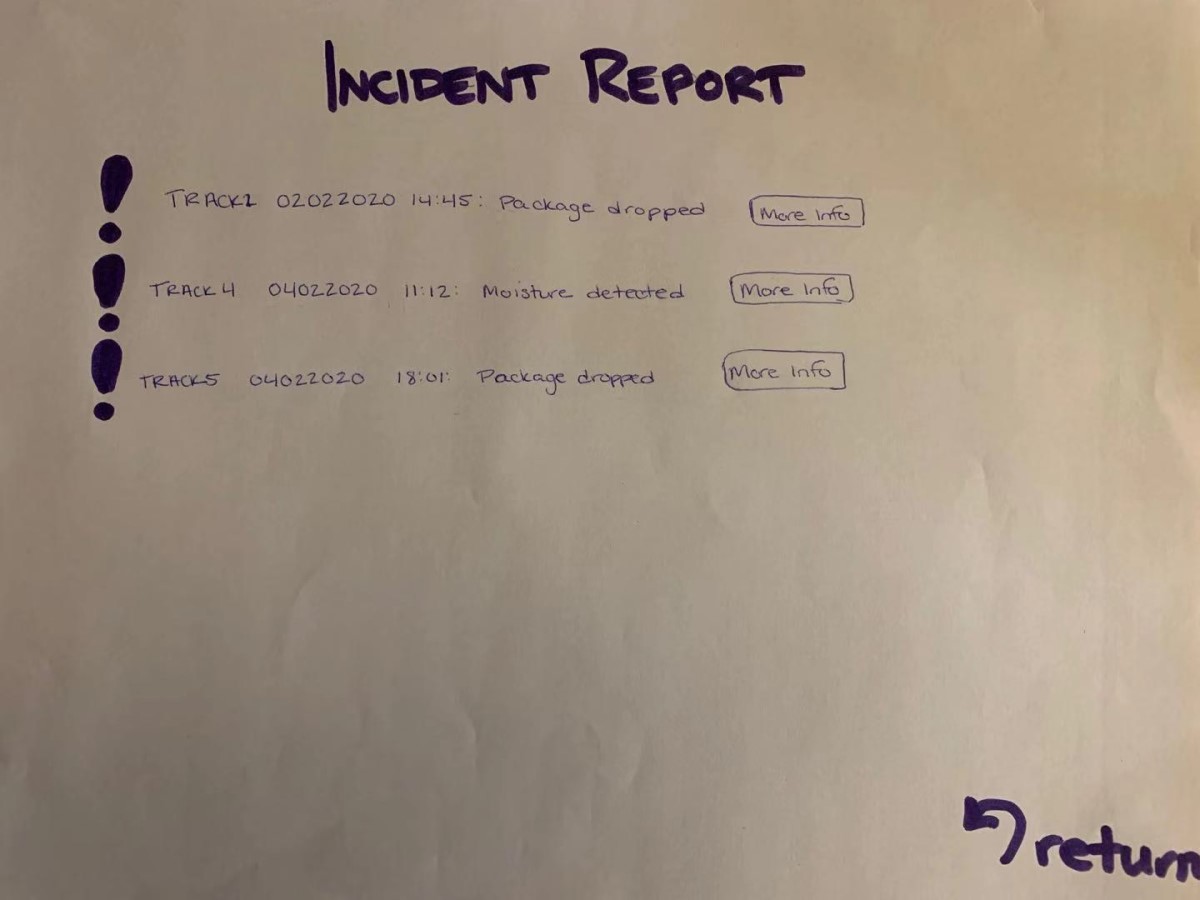 INCIDENT REPORT
! TRACK2 02022020 14:45: Package dropped More Info
! TRACK4 04022020 11:12: Moisture detected More Info
! TRACK5 04022020 18:01: Package dropped More Info
return